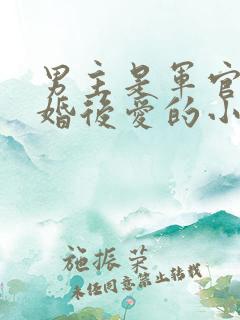 男主是軍官
婚後愛的小
施振荣
未经同意禁止转载